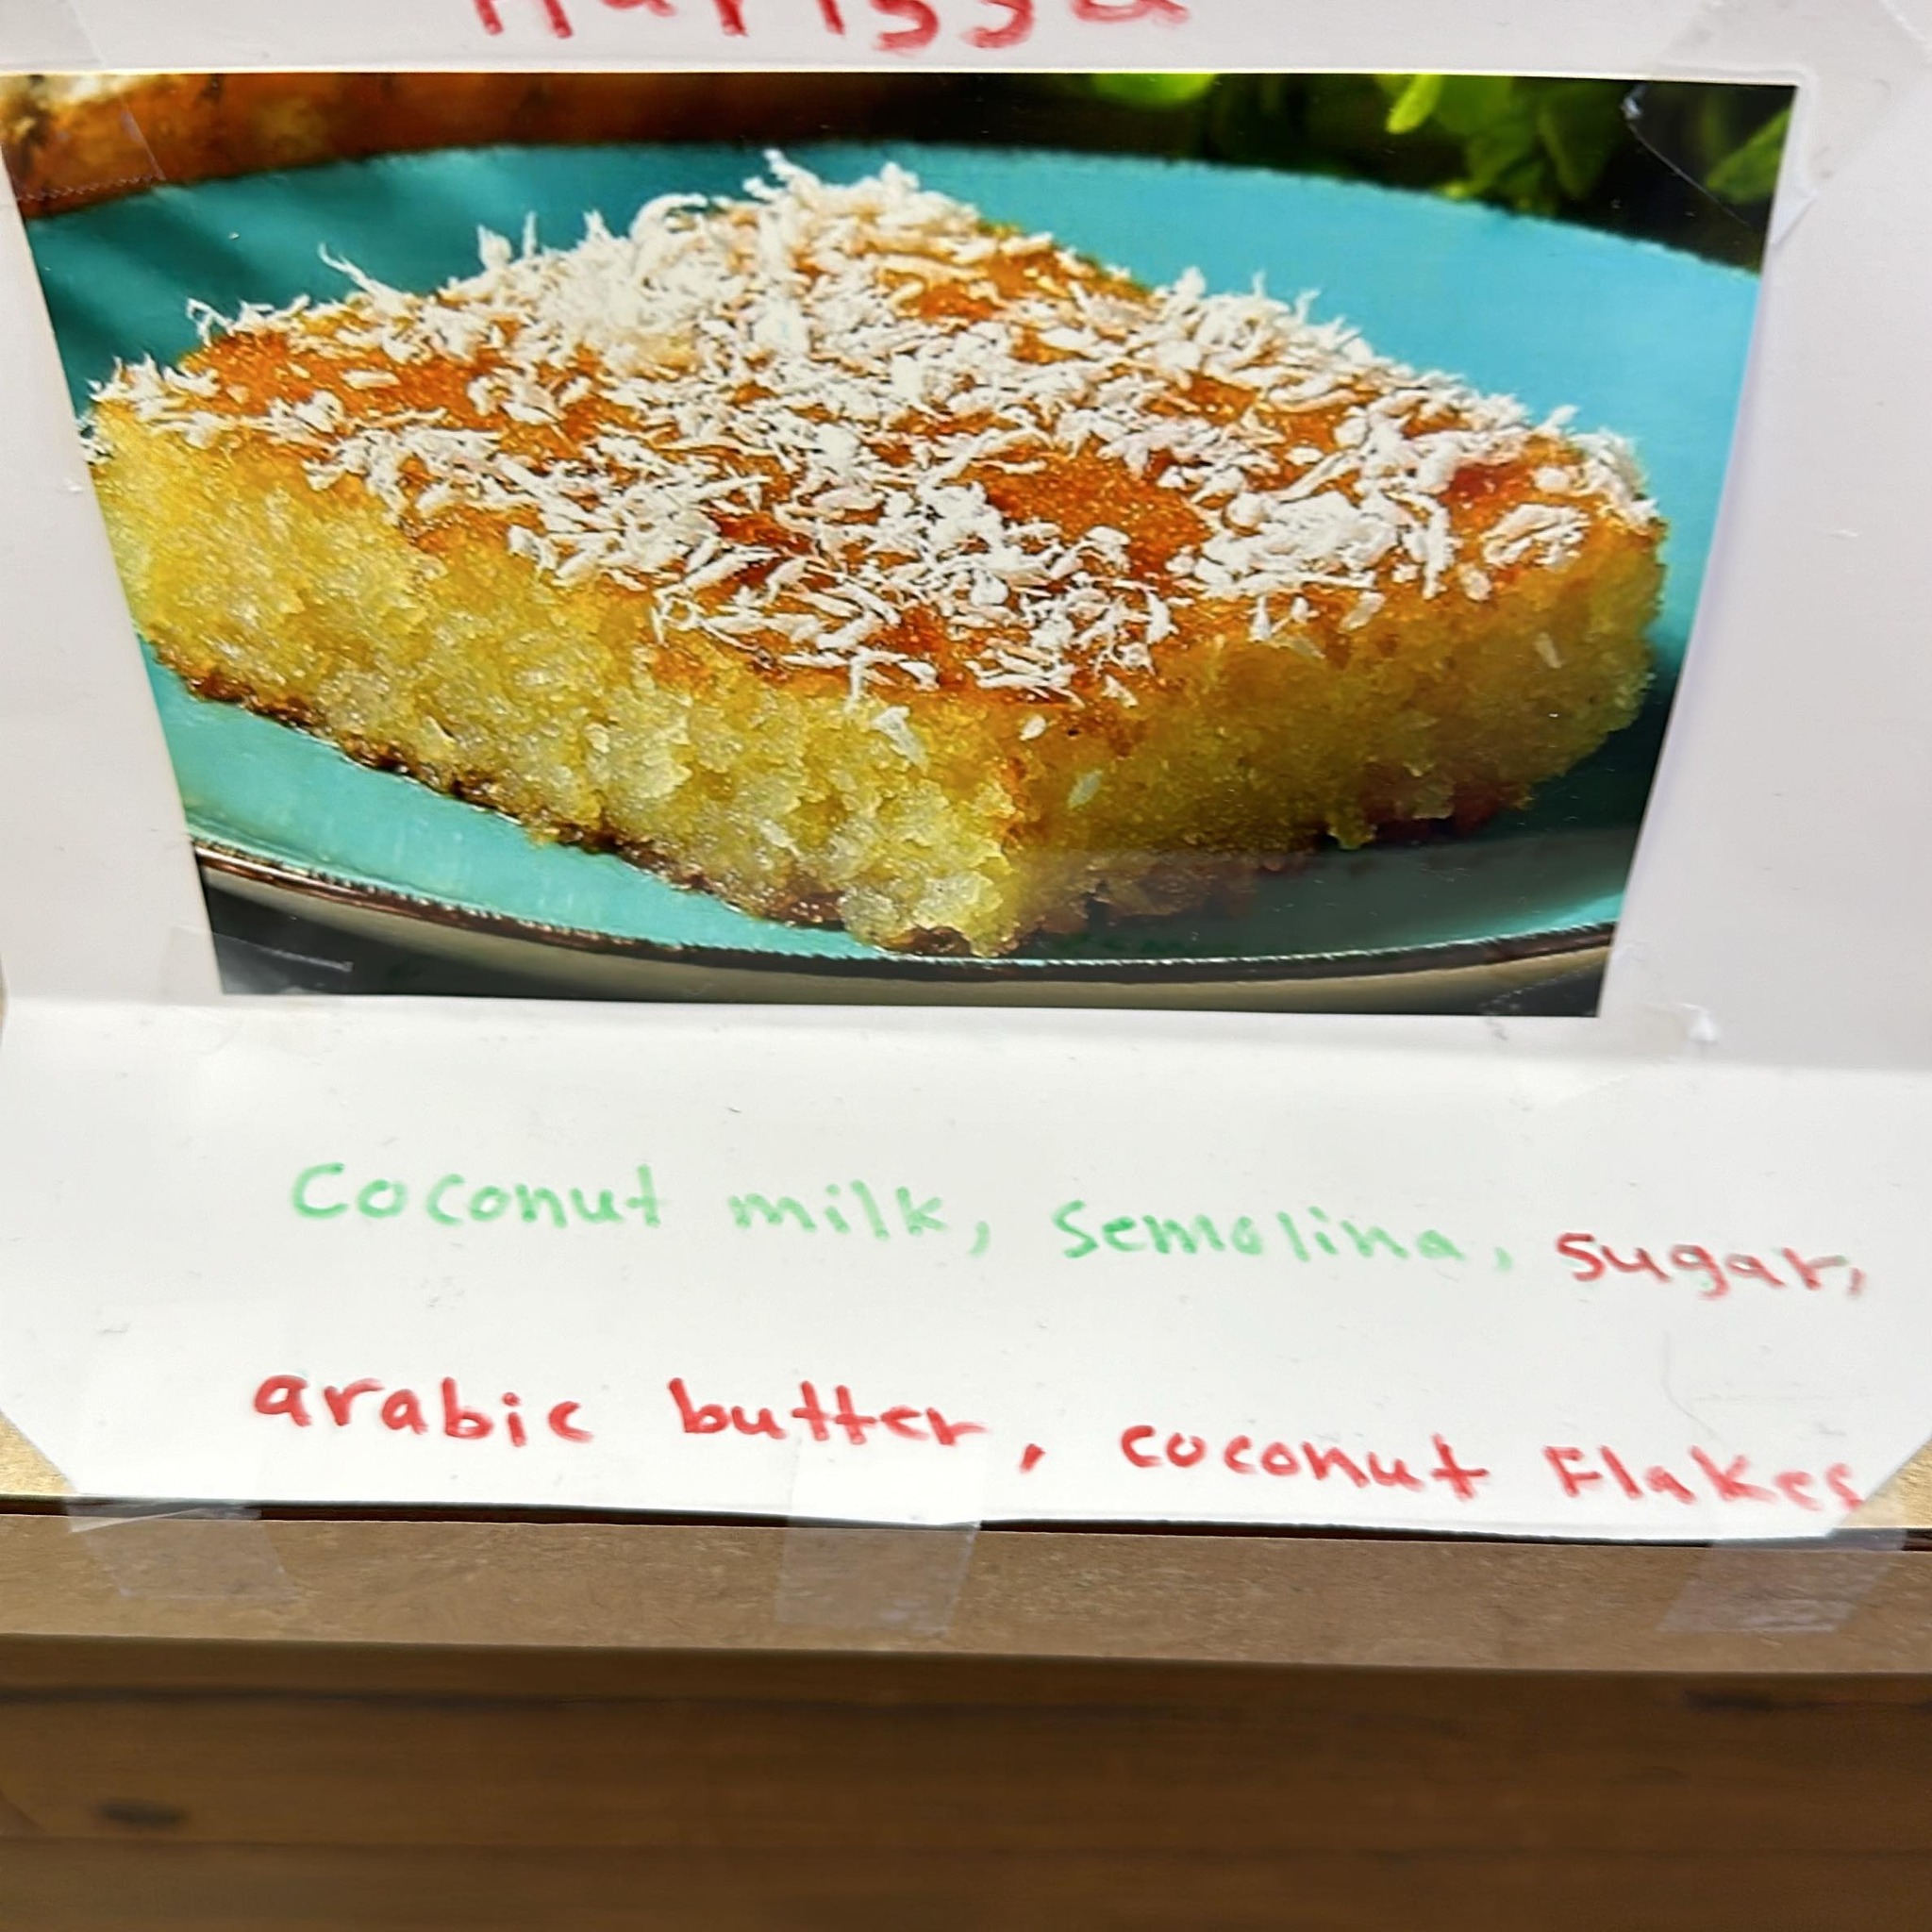 Harissa
Coconut milk, Semolina, Sugar,
arabic butter, coconut Flakes